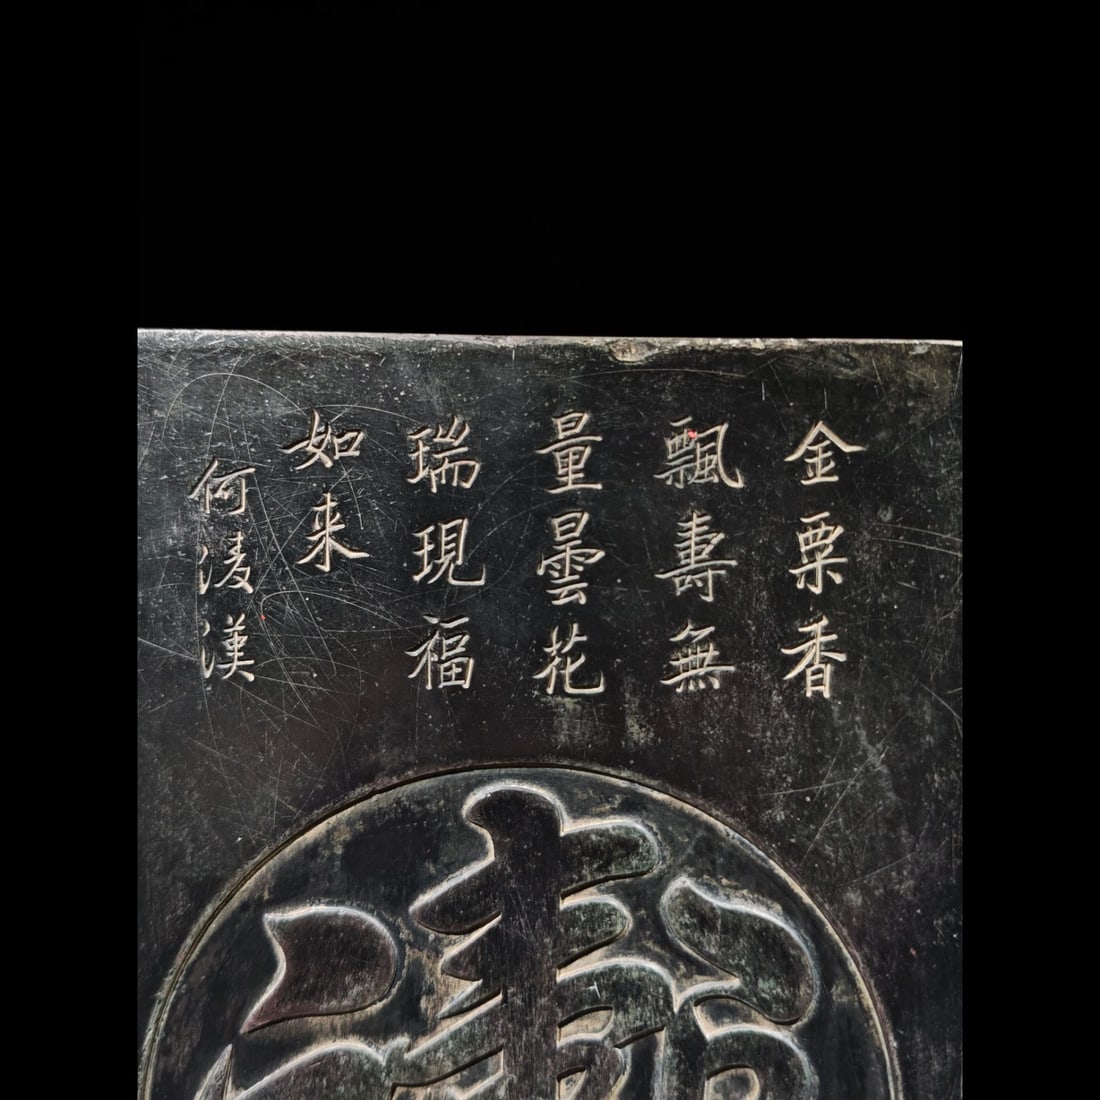 金粟香
飄壽無
量曇花
瑞現福
如来
何淩漢